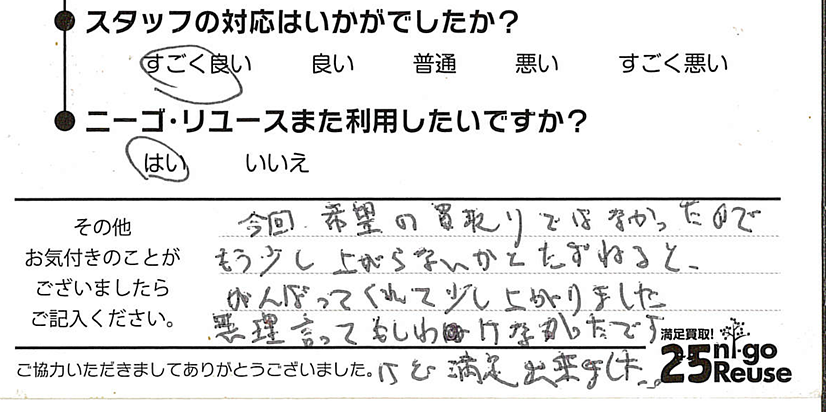 スタッフの対応はいかがでしたか?
すごく良い 良い 普通 悪い すごく悪い
ニーゴ・リユースまた利用したいですか?
はい いいえ
その他
お気付きのことが
ございましたら
ご記入ください。
今回 希望の買取りではなかったので
もう少し上がらないかとたずねると、
がんばってくれて少し上がりました
無理言ってもしわけなかったです
けど満足出来ました。
ご協力いただきましてありがとうございました。
満足買取!
25 ni-go
Reuse